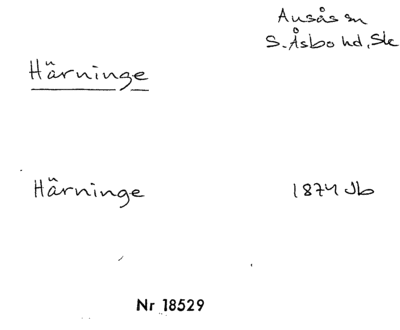 Ausås sn
S. Åsbo hd, Sk
Härninge
Härninge 1874 Jb
Nr 18529